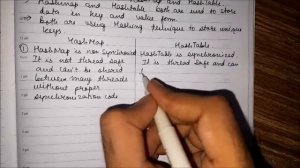 Hashmap and Hashtable both are used to store
data in key and value form
Both are using Hashing technique to store unique
keys
HashMap HashTable
① HashMap is non synchronized HashTable is synchronized
It is not thread safe It is thread safe and can
and can't be shared
between many threads
without proper
synchronization code